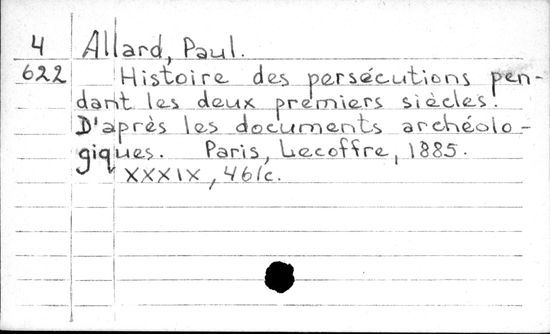 4 Allard, Paul.
622 Histoire des persécutions pen-
dant les deux premiers siècles.
D'après les documents archéolo-
giques. Paris, Lecoffre, 1885.
XXXIX, 461c.